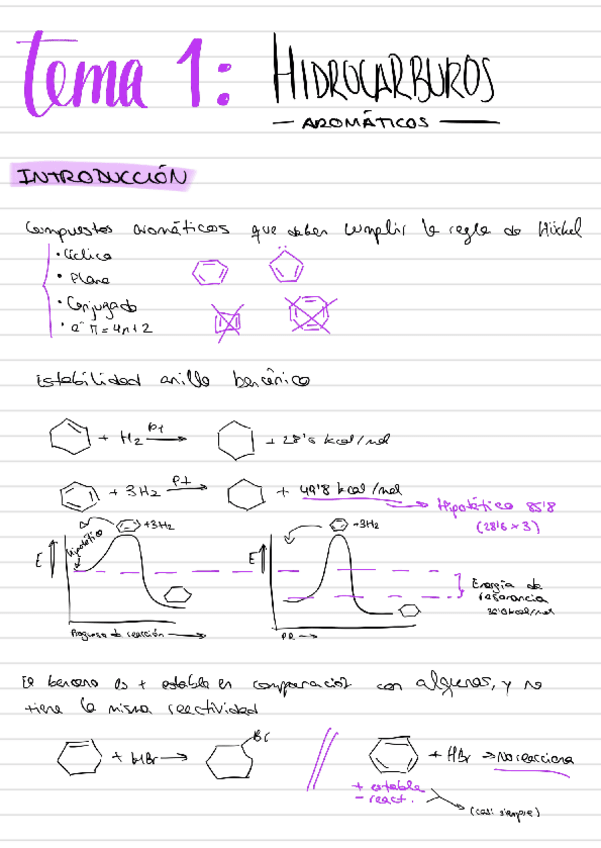 tema 1: HIDROCARBUROS
— AROMÁTICOS —
INTRODUCCIÓN
Compuestos aromáticos que deben cumplir la regla de Hückel
• Cíclico
• Plano
• Conjugado
• e⁻ π = 4n+2
Estabilidad anillo bencénico
+ H2 Pt → + 28'6 kcal/mol
+ 3H2 Pt → + 49'8 kcal/mol
→ Hipotético 85'8
(28'6 x 3)
Hipotético
+3H2
E
Progreso de reacción →
+3H2
E
P.R. →
Energía de
resonancia
kcal/mol
El benceno es + estable en comparación con alguenos, y no
tiene la misma reactividad
+ HBr → Br
+ HBr → No reacciona
+ estable
- react.
(casi siempre)